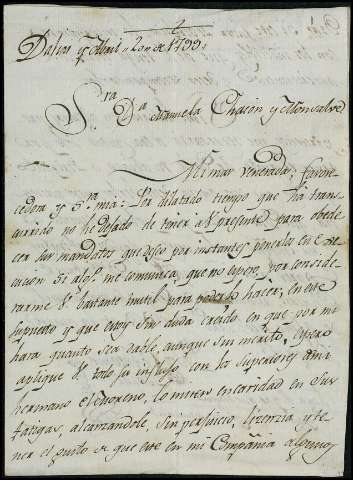 Dalías y Abril 20 de 1799,
S.ra D.a Manuela Chacon y Monsalve
Mi mas venerada, favore-
cedora y S.ra mia: Por dilatado tiempo que ha trans-
currido no he dejado de tener a V. presente para obede-
cer sus mandatos que deseo por instantes ponerlos en eje-
cucion si alg.o me comunica, que no espero, por conside-
rarme V. bastante inutil para poderlo hacer, en este
supuesto y que estoy sin duda creido en que por mi
hara quanto sea dable, aunque sin merito, espero
aplique V. todo su influjo con los Superiores a mi
hermano el moreno, lo miren en caridad en sus
fatigas, alcanzandole, sin perjuicio, lizenzia y te-
ner el gusto de que este en mi Compañia algunos